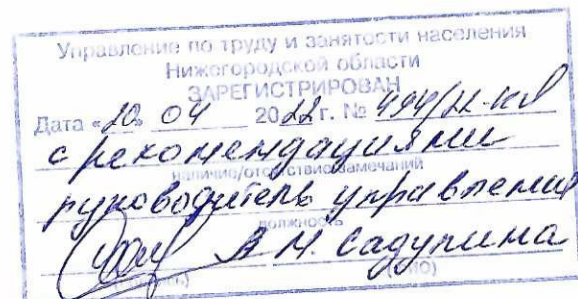 Управление по труду и занятости населения
Нижегородской области
ЗАРЕГИСТРИРОВАН
Дата «20» 04 2022 г. № 494/22-КД
с рекомендациями
наличие/отсутствие замечаний
руководитель управления
должность
А М. Садулина
(ФИО)